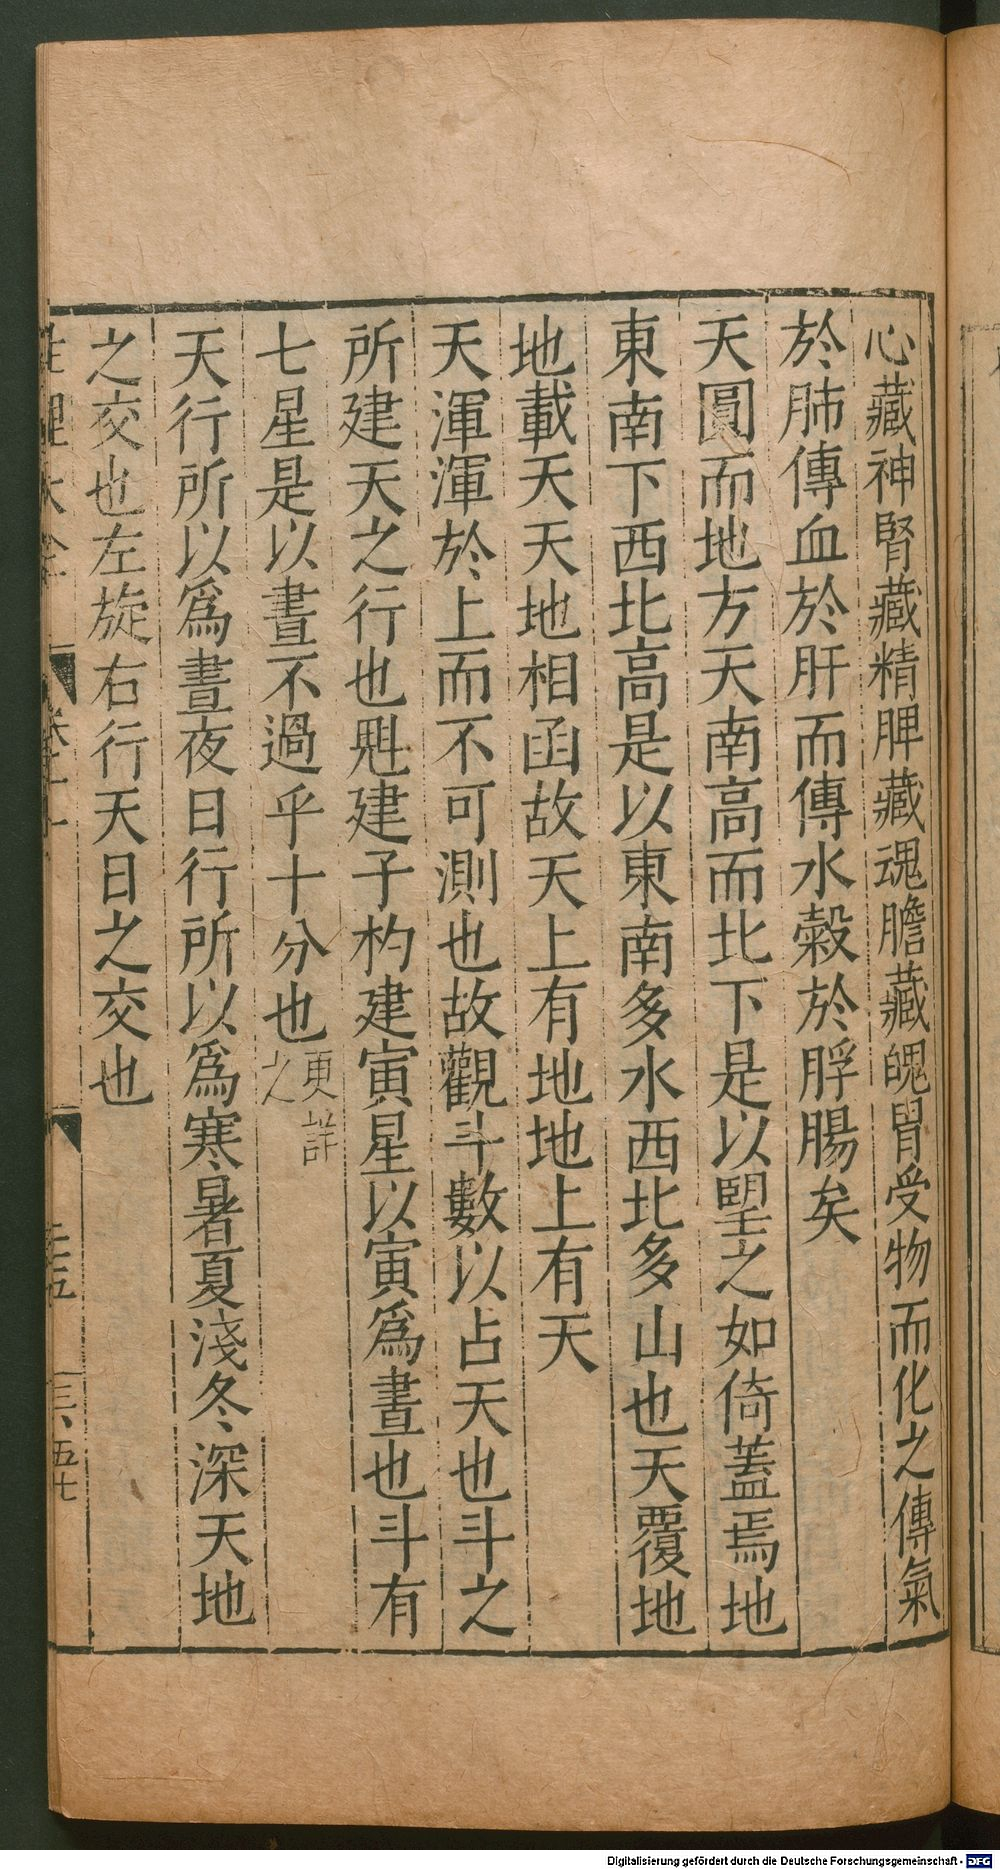 心藏神腎藏精脾藏魂膽藏魄胃受物而化之傳氣
於肺傳血於肝而傳水穀於脬腸矣
天圓而地方天南高而北下是以望之如倚蓋焉地
東南下西北高是以東南多水西北多山也天覆地
地載天天地相函故天上有地地上有天
天渾渾於上而不可測也故觀斗數以占天也斗之
所建天之行也魁建子杓建寅星以寅爲晝也斗有
七星是以晝不過乎十分也更詳之
天行所以爲晝夜日行所以爲寒暑夏淺冬深天地
之交也左旋右行天日之交也
性理大全 卷十一
三、五七
Digitalisierung gefördert durch die Deutsche Forschungsgemeinschaft - DFG